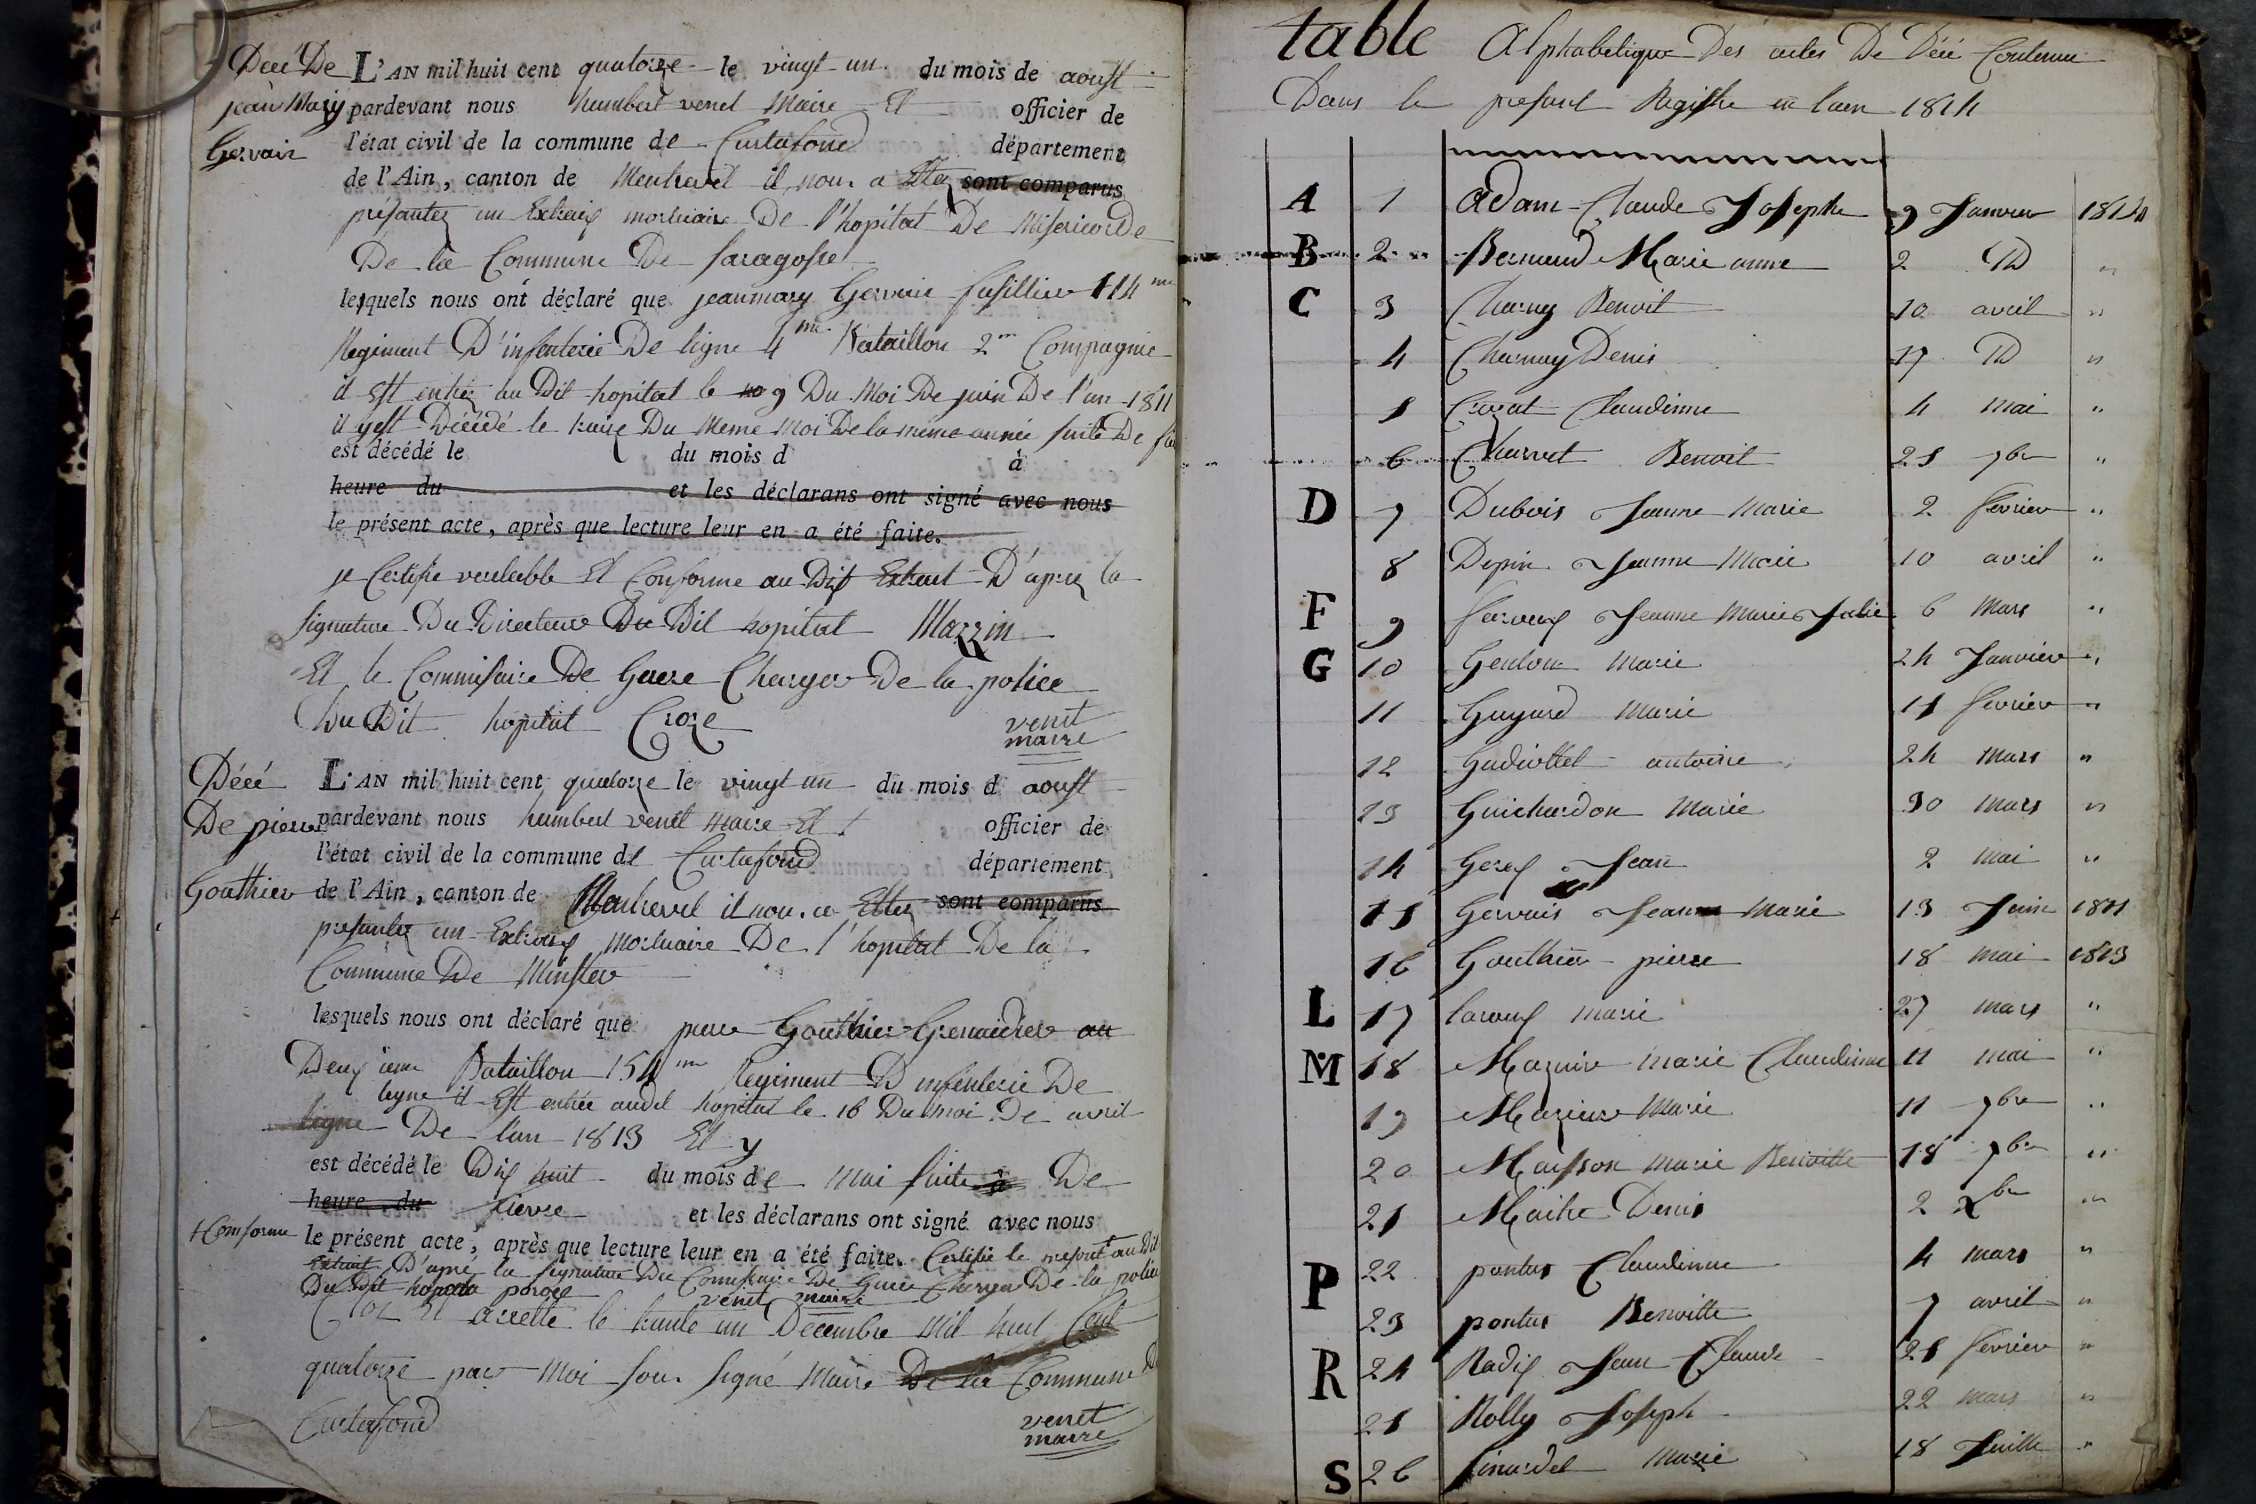 Décé De
jean Mary
Gervain
L'AN mil huit cent quatorze le vingt un du mois de aoust
pardevant nous humbert venet Maire Et officier de
l'état civil de la commune de Curtafond département
de l'Ain, canton de Montrevel il nous a Etez sont comparus
présantez un Extrais mortuaire De l'hopital De Misericorde
De la Commune De Saragosse
lesquels nous ont déclaré que jeanmary Gervais fusillier 114 me
Regiment D'infenterie De ligne 4 me Bataillon 2 me Compagnie
il Est entréz au Dit hopital le 9 Du Moi De juin De l'an 1811
il yest Décédé le traize Du Meme Moi De la même année suite De
est décédé le du mois d à
heure du et les déclarans ont signé avec nous
le présent acte, après que lecture leur en a été faite.
je Certifie veritable Et Conforme au Dit Extrait D'aprez la
signature Du Directeur Du Dit hopital Mazzin
Et le Commissaire De Guere Charger De la police
Du Dit hopital Croze
venet
maire
Décé
De pierre
Gouthier
L'AN mil huit cent quatorze le vingt un du mois d aoust
pardevant nous humbert venet maire Et officier de
l'état civil de la commune de Curtafond département
de l'Ain, canton de Montrevel il nou a Ettez sont comparus
presantez un Extrais mortuaire De l'hopital De la
Commune De Minster
lesquels nous ont déclaré que pierre Gouthier Grenaidier au
Deuxieme Bataillon 154 me Regiment D'infenterie De
ligne il Est entrée audit hopital le 16 Du moi De avril
ligne De l'an 1813 Et y
est décédé le Dix huit du mois de mai suite à De
heure du fievre et les déclarans ont signé avec nous
+ Conforme
le présent acte, après que lecture leur en a été faite. Certifié le present + au Dit
Extrait D'apré la signature Du Commissaire De Guere Charger De la police
Du Dit hopital
venet maire
Cloz Et arretté le trante un Decembre Mil huit Cent
quatorze par Moi sou signé Maire De la Commune De
Curtafond
venet
maire
table Alphabetique Des actes De Décé Contenu
Dans le present Registre en l'an 1814
A 1 Adam Claude Joseph 9 Janvier 1814
B 2 Bernaud Marie anne 2 D "
C 3 Charnay Benoit 10 avril "
4 Charnay Denis 17 D "
5 Curat Claudinne 4 mai "
6 Charvet Benoit 25 7bre "
D 7 Dubois Jeanne Marie 2 février "
8 Depin Jeanne Marie 10 avril "
F 9 Jeanne Marie Julie 6 Mars "
G 10 Marie 24 Janvier "
11 Guyard Marie 15 février "
12 Gudiottet antoine 24 mars "
13 Guichardon Marie 30 mars "
14 Jean 2 mai "
15 Gervais Jean Marie 13 Juin 1811
16 Gouthier pierre 18 mai 1813
L 17 marie 27 mars "
M 18 Mazuir marie Claudinne 11 mai "
19 Mazuir Marie 11 7bre "
20 Maisson marie Benoitte 18 7bre "
21 Maitre Denis 2 Xbre "
P 22 pontus Claudinne 4 mars "
23 pontus Benoitte 7 avril "
R 24 Radix Jean Claude 25 février "
25 Rolly Joseph 22 mars "
S 26 Sinardet Marie 18 Juillet "